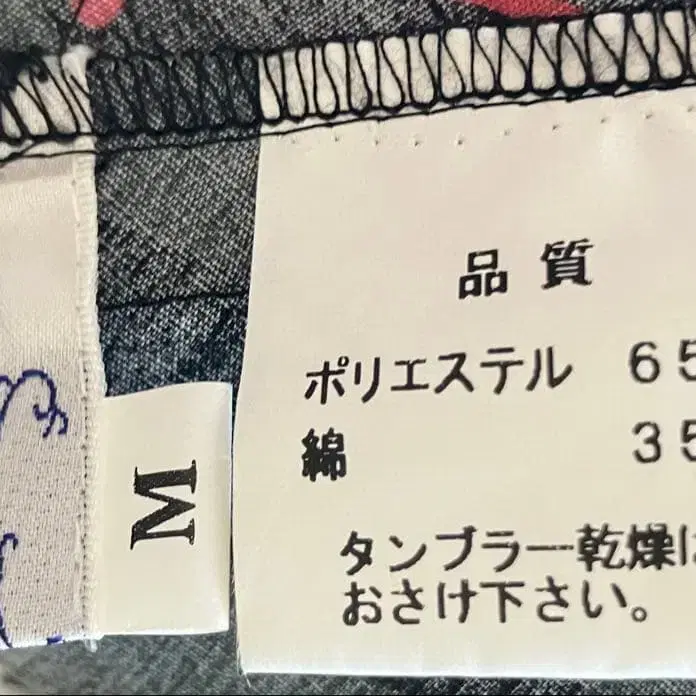 M
品質
ポリエステル 65
綿 35
タンブラー乾燥は
おさけ下さい。